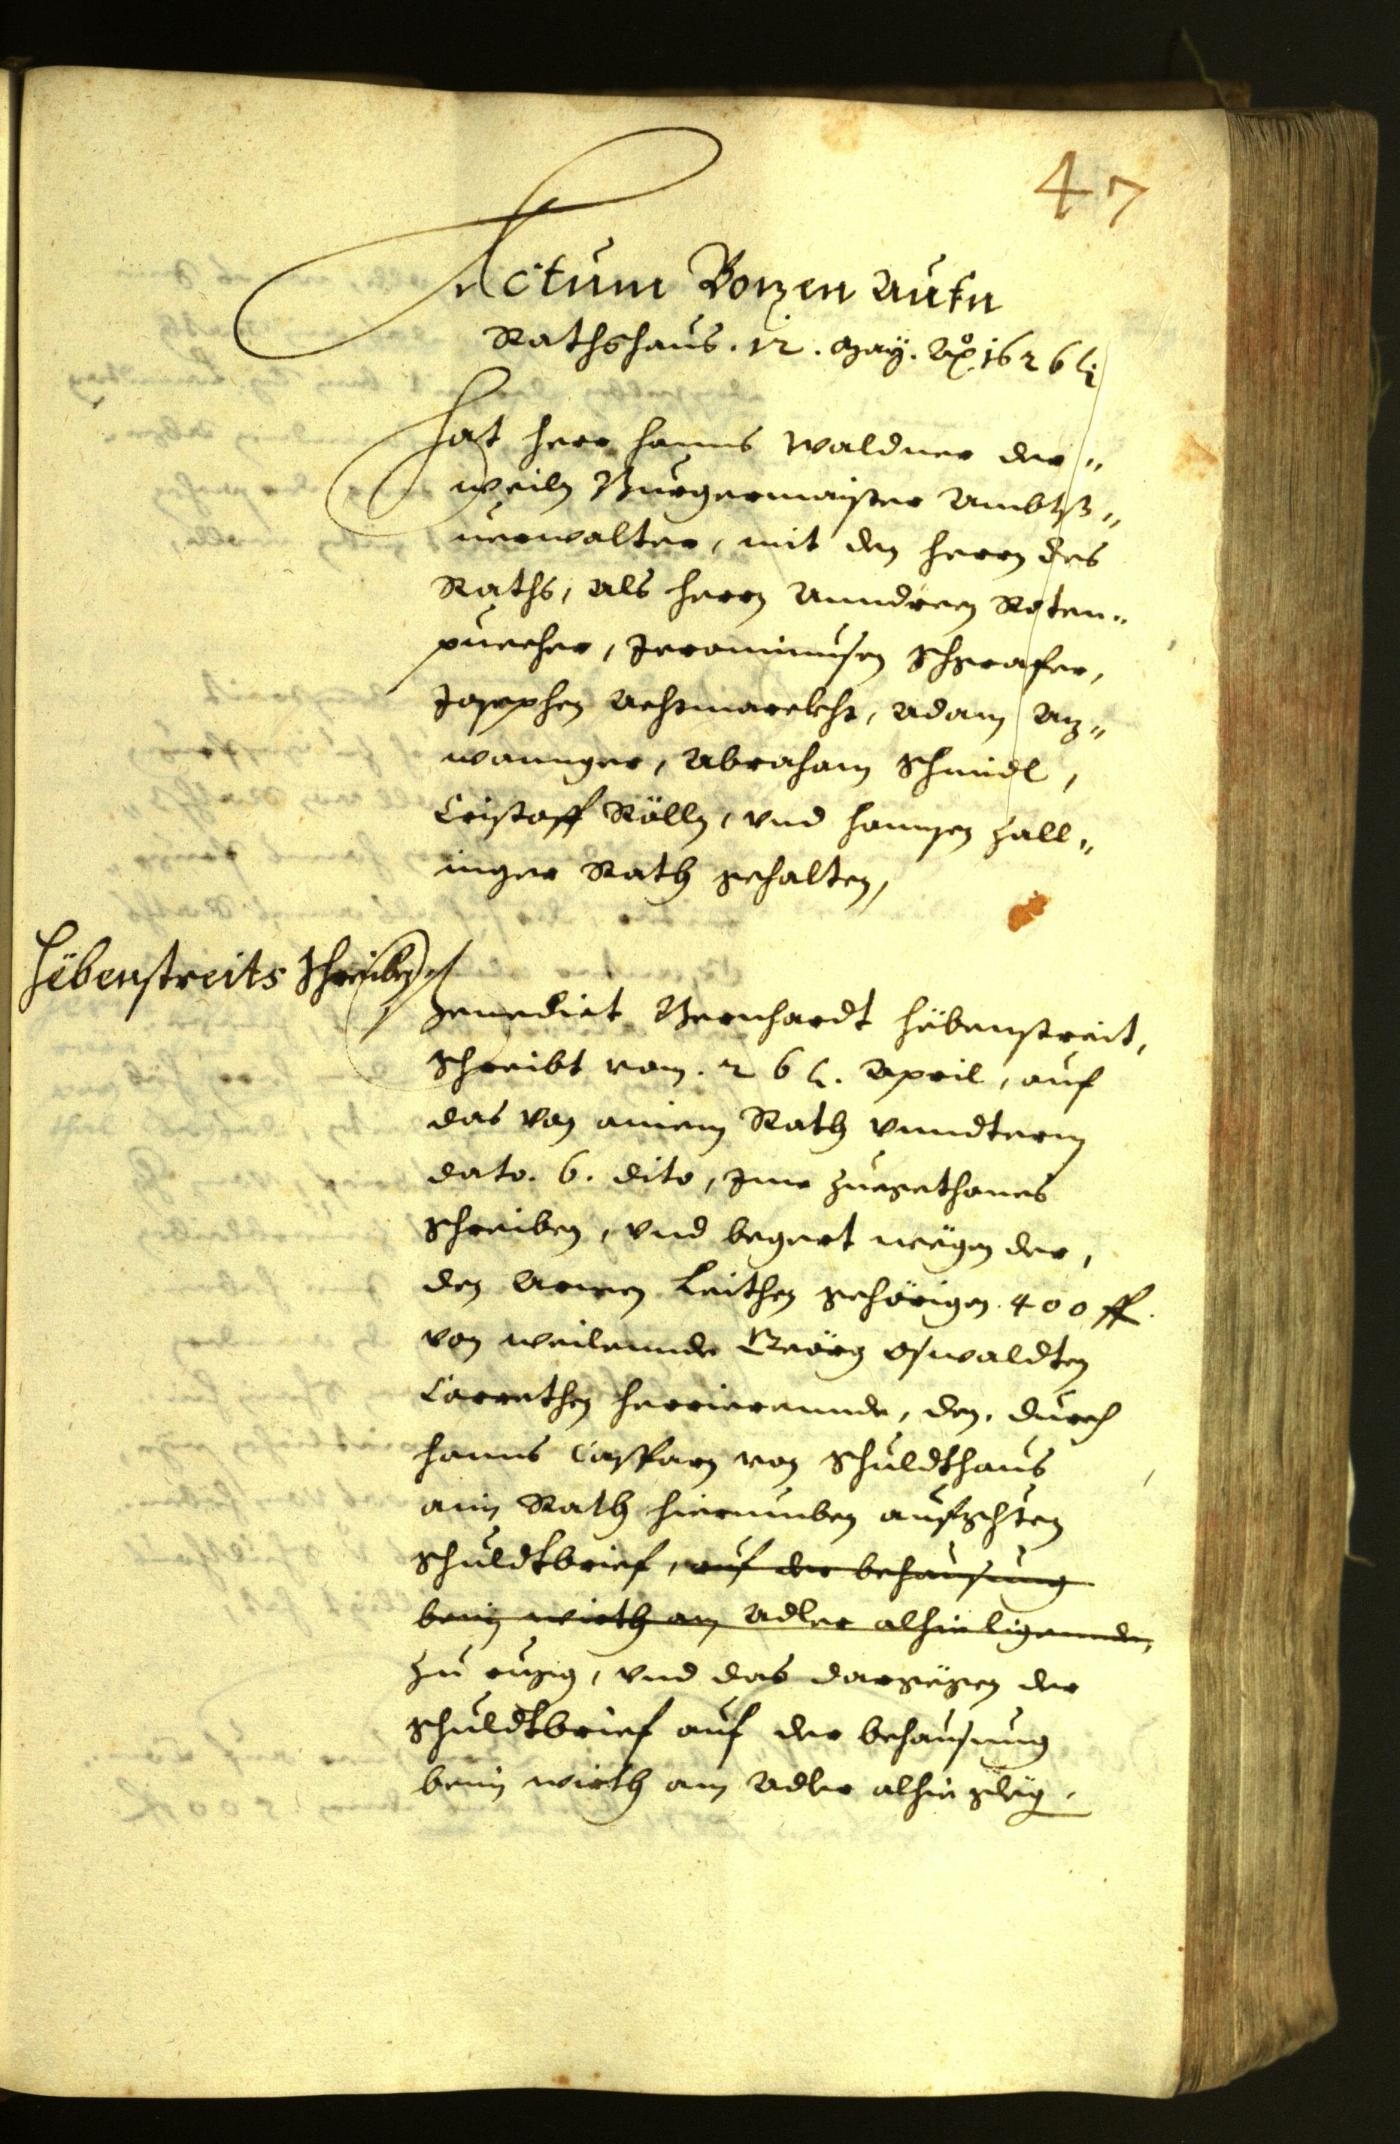 47
Actum Bozen aufn
Rathshaus. 12. May. Ao. 1626
Hat Herr Hanns Waldner der„
weiln Burgermaister Ambts„
verwalter, mit den Herrn des
Raths, als Herrn Anndreen Roten„
puecher, Jeronimusen Schgrafer,
Josephen Achtmarckht, Adam An„
wannger, Abraham Schmidl,
Cristoff Rölln, vnd Hannsen Zall„
inger Rath gehalten,
Hebenstreits schreiben
Benedict Bernhardt Hebenstreit,
Schreibt vom. 26. April, auf
das von ainem Rath vnndterm
dato. 6. dito, Ime zuegethanes
schreiben, vnd begert wegen der,
den Armen Leithen gehörigen 400 ff
von weilennde Geörg Oswaldten
Carrethen herrierennde, den, durch
Hanns Casparn von Schuldthaus
ain Rath hierumben aufgehten
schuldtbrief, auf der behausung
beim wirth am Adler alhie ligennden,
zu , vnd das dargegen der
schuldtbrief auf der behausung
beim wirth am Adler alhie